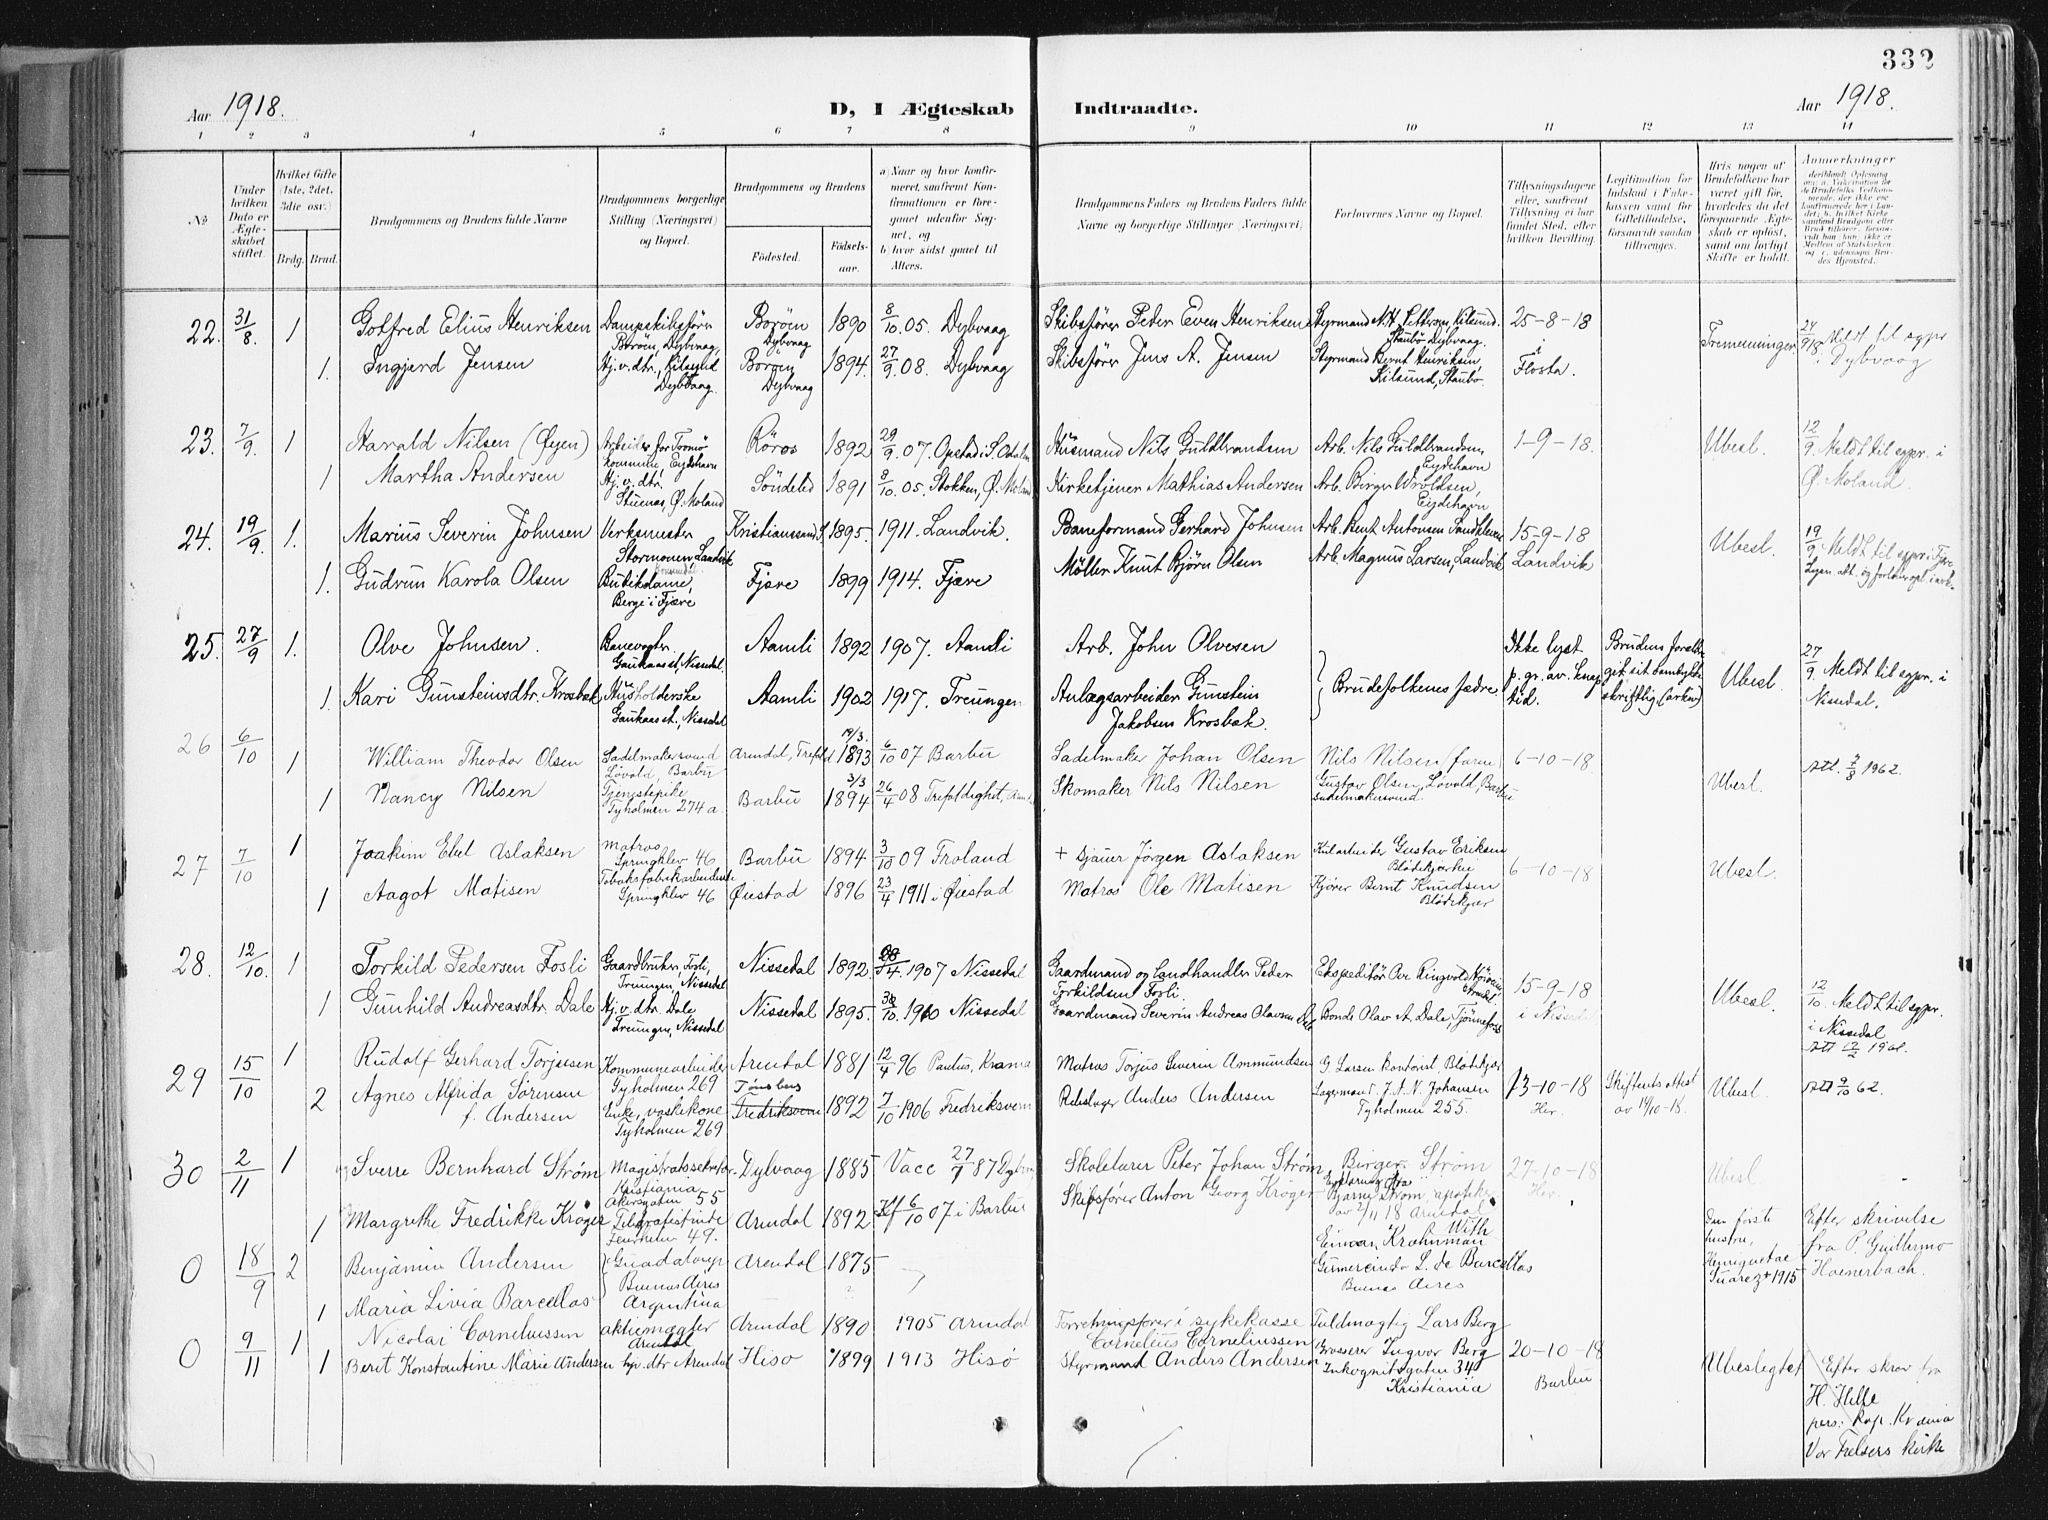 332
Aar 1918.
D, I Ægteskab Indtraadte.
Aar 1918.
1 2 3 4 5 6 7 8 9 10 11 12 13 14
No
Under hvilken Dato er Ægteskabet stiftet.
Hvilket Gifte (1ste, 2det, 3die osv.)
Brdg. Brud.
Brudgommens og Brudens fulde Navne
Brudgommens borgerlige Stilling (Næringsvei) og Bopæl.
Brudgommens og Brudens
Fødested. Fødselsaar.
a) Naar og hvor konfirmeret, saafremt Konfirmationen er foregaaet udenfor Sognet, og
b) hvor sidst gaaet til Alters.
Brudgommens Faders og Brudens Faders fulde Navne og borgerlige Stillinger (Næringsvei)
Forlovernes Navne og Bopæl.
Tillysningsdagene eller, saafremt Tillysning ei har fundet Sted, efter hvilken Bevilling.
Legitimation for Indskud i Enkekassen samt for Giftetilladelse, forsaavidt saadan tiltrænges.
Hvis nogen af Brudefolkene har været gift før, hvorledes da det foregaaende Ægteskab er opløst, samt om lovligt Skifte er holdt.
Anmerkninger
22. 31/8. 1 Gotfred Elius Henriksen Dampskibsfører Borøen, Dybvaag Borøen Dybvaag 1890 8/10 05. Dybvaag Skibsfører Peder Even Henriksen Styrmand N. H. Pettersen, Kilsund. Staubø Dybvaag. 25-8-18 i Flosta. Tremenninger 24/9 18. Meldt til sgpr i Dybvaag
1. Ingjerd Jensen Hj. v. dtr., Kilsund Dybvaag. Borøen Dybvaag 1894. 27/9 08. Dybvaag Skibsfører Jens A. Jensen Styrmand Bernt Henriksen, Kilsund, Staubø.
23. 7/9. 1 Harald Nilsen (Øyen) Arbeider for Tromø kommune, Eydehavn Röros 1892 29/9 07. Husmand Nils Guldbrandsen Arb. Nils Guldbrandsen, Eydehavn 1-9-18. Ubesl. 12/9 Meldt til sgpr. i Ø. Moland.
1 Martha Andersen Hj. v. dtr. Stuenes, Ø. Moland Söndeled 1891 8/10 05. Stokken, Ø. Moland Kirketjener Mathias Andersen Arb. Birger Wroldsen, Eydehavn
24. 19/9. 1. Marius Severin Johnsen Verksmester Stormoen Landvik Kristianssand S. 1895. 1911. Landvik. Baneformand Gerhard Johnsen Arb. Bent Antonsen 15-9-18 Landvik Ubesl. 19/9 Meldt til sgpr. i Fjære
1. Gudrun Karola Olsen Butikdame, Berge i Fjære Fjære 1899 1914. Fjære Møller Knut Bjørn Olsen Arb. Magnus Larsen, Landvik
25. 27/9 1. Olve Johnsen. Banevogter. Gaukaas st, Nissedal. Aamli 1892 1907. Aamli Arb. John Olvesen Brudefolkenes fædre. Ikke lyst p. gr. av. knap tid. Brudens forældre git sit samtykke skriftlig (arkiv) Ubesl. 27/9 Meldt til sgpr. i Nissedal.
1. Kari Gunsteinsdtr. Krosbæk Husholderske Gaukaas st., Nissedal Aamli 1902 1917. Treungen Anlægsarbeider Gunstein Jakobsen Krosbæk.
26 6/10 1 William Theodor Olsen Sadelmakersvend Løvold, Barbu Arendal, Trefold 19/3. 1893 6/10 07 Barbu Sadelmaker Johan Olsen Nils Nilsen (faren) 6-10-18 Ubesl. Att. 7/8 1962.
1 Nancy Nilsen Tjenestepike Tyholmen 274 a. Barbu 3/3 1894 26/4 08 Trefoldighet, Skomaker Nils Nilsen Gustav Olsen, Løvold, Barbu sadelmakersvend.
27 7/10 1 Joakim Ebel Aslaksen Matros Springklev 46 Barbu 1894 3/10 09 Froland + Jørgen Aslaksen Kularbeider Gustav Eriksen Blødekjær 6-10-18 Ubesl.
1 Aagot Matisen Tobaksfabrikarbeiderske Springklev 46 Øiestad 1896 23/4 1911 i Øiestad Matros Ole Matisen Kjører Bernt Knudsen Blødekjær
28. 12/10. 1 Torkild Pedersen Fosli Gaardbruker, Fosli, Treungen, Nissedal Nissedal 1892. 1907 Nissedal Gaardmand og Landhandler Peder Torkildsen Fosli. Ekspeditør Ove Ringvold 15-9-18 i Nissedal Ubesl. 12/10 Meldt til sgpr. i Nissedal
1 Gunhild Andreasdtr. Dale Hj. v. dtr. Dale Treungen, Nissedal Nissedal 1895. 1910 Nissedal Gaardmand Severin Andreas Olavsen Dale Bonde Olav A. Dale, Tjønnefoss
29 15/10 1 Rudolf Gerhard Torjusen Kommunearbeider Tyholmen 269 Arendal 1881 12/4 96 Paulus, Kr.ania Matros Torjus Severin Ammundsen G. Larsen kontorist, Blødekjær 13-10-18 Her. Skifterets attest av 14/10-18. Ubesl. Att 9/10 62.
2 Agnes Alfrida Sørensen f. Andersen Enke, vaskekone Tyholmen 269 Tønsberg Fredriksvern 1892 7/10 1906 Fredriksvern Rebslager Anders Andersen Lagermand J. A. N. Johansen Tyholmen 255.
30 2/11 1 Sverre Bernhard Strøm Magistratssekretær Kristiania Akersgaten 55 Dybvaag 1885 Vacc 27/7 87 Dybvaag Skolelærer Peter Johan Strøm Birger Strøm 27-10-18 Her. Ubesl
1 Margrethe Fredrikke Krøger Telegrafistinde 49. Arendal 1892 Kf 6/10 07 i Barbu Skibsfører Anton Georg Krøger Bjarne Strøm, Arendal
0 18/9 2 Benjamin Andersen Guadaloupe Buenos Aires Argentina Arendal 1875 Einar Krohnman Gumercindo L. de Barcellos Buenos Aires Den første hustru, Suarez + 1915 Efter skrivelse fra P. Guillermo Hoenerbach.
1 Maria Livia Barcellos
0 9/11 1 Nicolai Corneliussen aktiemægler Arendal Arendal 1890 1905 Arendal Forretningsfører i sykekasse Cornelius Corneliussen Fuldmægtig Lars Berg 20-10-18 Barbu Ubeslegtet Efter skrev fra H. Hille pers: kap. Kr.ania Vor Frelsers kirke
1 Berit Konstantine Marie Andersen hjv. dtr Arendal Hisø 1899 1913 Hisø Styrmand Anders Andersen Grosserer Ingvar Berg Inkognitogaten 34 Kristiania